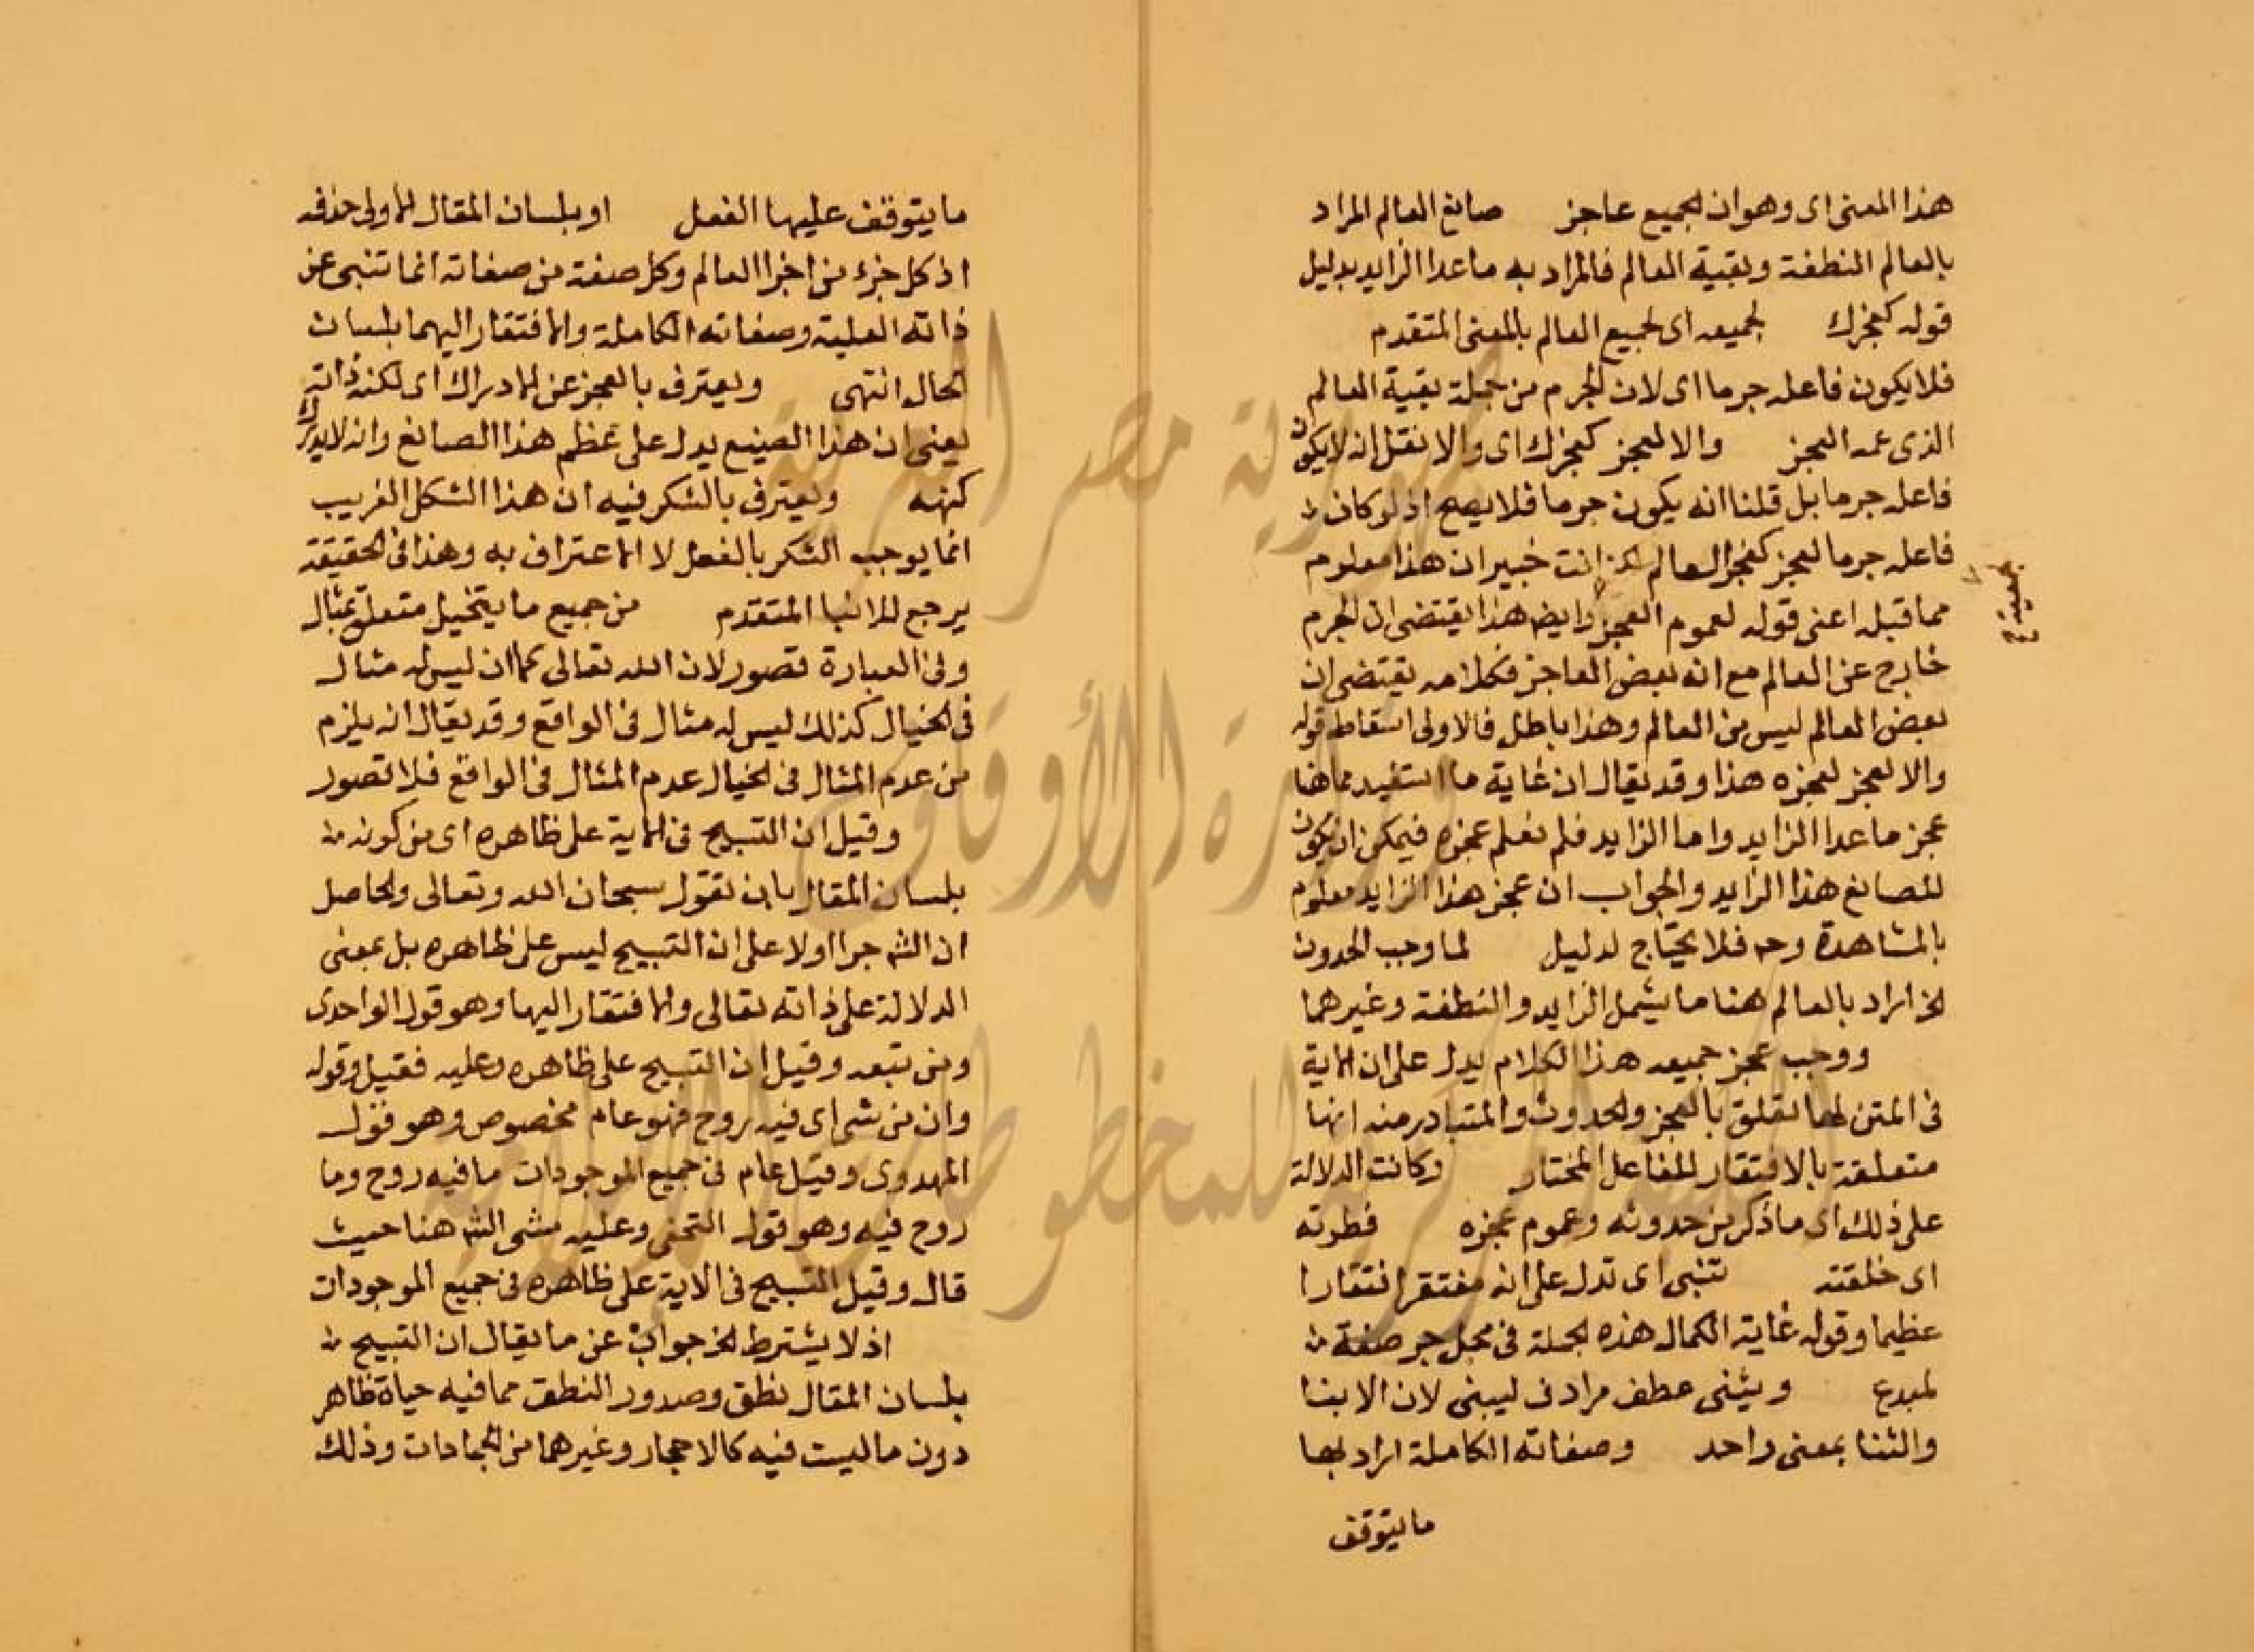 هذا المعنى اى وهو ان الجميع عاجز صانع العالم المراد
بالعالم النطفة وبقية العالم فالمراد به ماعدا الزايد بدليل
قوله كعجزك لجميعه اى لجميع العالم بالمعنى المتقدم
فلا يكون فاعله جرما اى لان الجرم من جملة بقية العالم
الذى عمه العجز والا لعجز كعجزك اى والا نقل انه لا يكون
فاعله جرما بل قلنا انه يكون جرما فلا يصح اذ لو كان
فاعله جرما لعجز كعجز العالم لكن انت خبير ان هذا معلوم
مما قبله اعنى قوله لعموم العجز وايض هذا يقتضى ان الجرم
خارج عن العالم مع انه بعض العاجز فكلامه يقتضى ان
بعض العالم ليس من العالم وهذا باطل فالاولى اسقاط قوله
والا لعجز لعجزه هذا وقد يقال ان غاية ما استفيد مما هنا
عجز ماعدا الزايد واما الزايد فلم نعلم عجزه فيمكن ان يكون
للصانع هذا الزايد والجواب ان عجز هذا الزايد معلوم
بالمشاهدة وح فلا يحتاج لدليل لما وجب الحدوث
الخ اراد بالعالم هنا ما يشمل الزايد والنطفة وغيرهما
ووجب عجز جميعه هذا الكلام يدل على ان الاية
فى المتن لها تعلق بالعجز والحدوث والمتبادر منه انها
متعلقة بالافتقار للفاعل المختار وكانت الدلالة
على ذلك اى ما ذكر من حدوثه وعموم عجزه فطرته
اى خلقته تنبى اى تدل على انه مفتقر افتقارا
عظيما وقوله غاية الكمال هذه الجملة فى محل جر صفة
لمبدع ويثنى عطف مرادف ليبنى لان الابنا
والثنا بمعنى واحد وصفاته الكاملة اراد بها
ما يتوقف
ما يتوقف عليها الفعل او بلسان المقال الاولى حذفه
اذ كل جزء من اجزا العالم وكل صفة من صفاته انما تنبى عن
ذاته العلية وصفاته الكاملة والافتقار اليهما بلسان
الحال انتهى ويعترف بالعجز عن الادراك اى لكنه ذاته
يعنى ان هذا الصنيع يدل على عظم هذا الصانع وانه لا يدرك
كنهه ويعترف بالشكر فيه ان هذا الشكل الغريب
انما يوجب الشكر بالفعل لا الاعتراف به وهذا فى الحقيقة
يرجع للانبا المتقدم من جميع ما يتخيل متعلق بمثال
وفى العبارة قصور لان الله تعالى كما ان ليس له مثال
فى الخيال كذلك ليس له مثال فى الواقع وقد يقال انه يلزم
من عدم المثال فى الخيال عدم المثال فى الواقع فلا قصور
وقيل ان التسبيح فى الاية على ظاهره اى من كونه
بلسان المقال بان تقول سبحان الله وتعالى والحاصل
ان الش جرا اولا على ان التسبيح ليس على ظاهره بل بمعنى
الدلالة على ذاته تعالى والافتقار اليها وهو قول الواحدى
ومن تبعه وقيل ان التسبيح على ظاهره وعليه فقيل وقوله
وان من شى اى فيه روح فهو عام مخصوص وهو قول
المهدوى وقيل عام فى جميع الموجودات ما فيه روح وما
روح فيه وهو قول النخعى وعليه مشى الش هنا حيث
قال وقيل التسبيح فى الاية على ظاهره فى جميع الموجودات
اذ لا يشترط الخ جواب عن ما يقال ان التسبيح
بلسان المقال نطق وصدور النطق مما فيه حياة ظاهر
دون ما ليست فيه كالاحجار وغيرهما من الجمادات وذلك
جمهورية مصر العربية
وزارة الأوقاف
المكتبة المركزية للمخطوطات الإسلامية